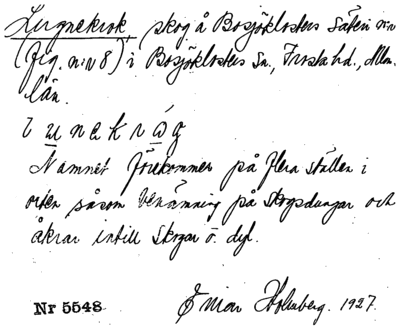 Lugnekrok, skog å Bosjöklosters Säteri n:r
(fig. n:r 8) i Bosjöklosters Sn., Frosta hd., Malm.
län.
lunekråg
Namnet förekommer på flera ställen i
orten såsom benämning på skogsdungar och
åkrar intill skogar o. dyl.
Nr 5548 Einar Holmberg. 1927.